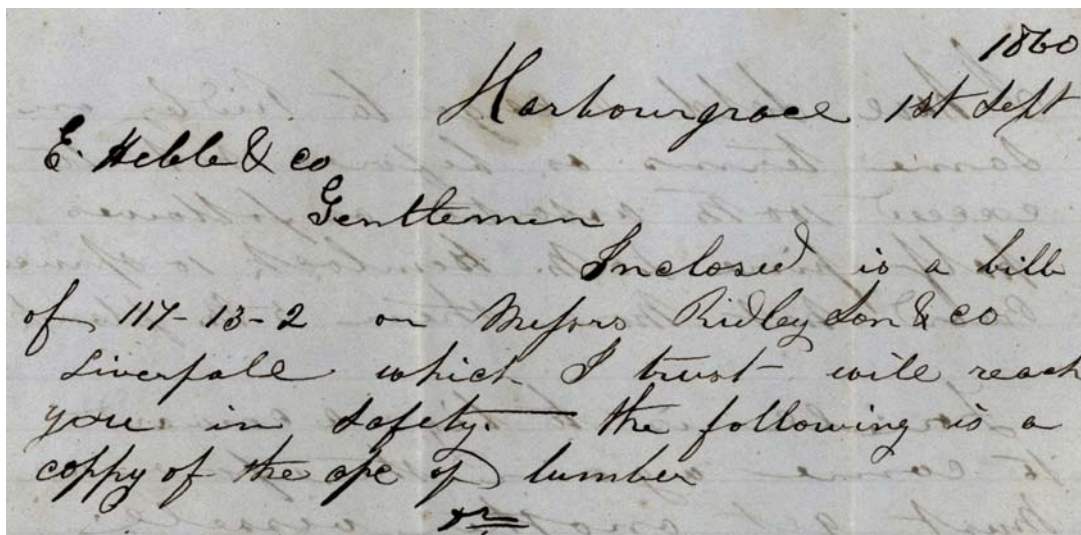 1860
Harbourgrace 1st Sept
E. Hebb & co
Gentlemen
Inclosed is a bill
of 117-13-2 on Messrs Ridley Son & co
Liverpall which I trust will reach
you in safety. the following is a
coppy of the of lumber